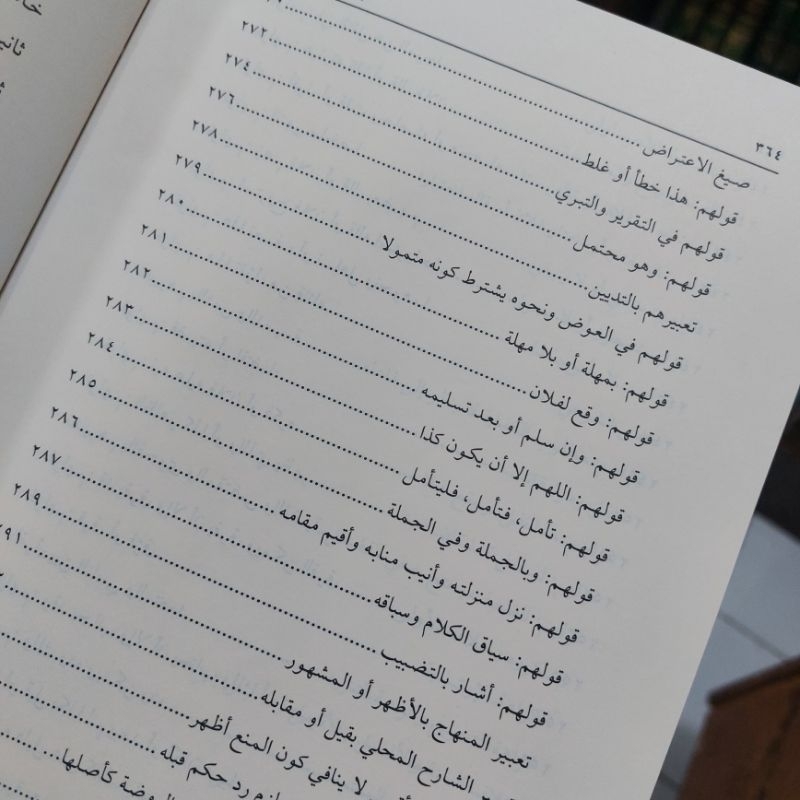 ٣٦٤
صيغ الاعتراض
قولهم: هذا خطأ أو غلط ٢٧٢
قولهم في التقرير والتبري ٢٧٤
قولهم: وهو محتمل ٢٧٦
تعبيرهم بالتديين ٢٧٨
قولهم في العوض ونحوه يشترط كونه متمولا ٢٧٩
قولهم: بمهلة أو بلا مهلة ٢٨٠
قولهم: وقع لفلان ٢٨١
قولهم: وإن سلم أو بعد تسليمه ٢٨٢
قولهم: اللهم إلا أن يكون كذا ٢٨٣
قولهم: تأمل، فتأمل، فليتأمل ٢٨٤
قولهم: وبالجملة وفي الجملة ٢٨٥
قولهم: نزل منزلته وأنيب منابه وأقيم مقامه ٢٨٦
قولهم: سياق الكلام وسباقه ٢٨٧
قولهم: أشار بالتضبيب ٢٨٩
تعبير المنهاج بالأظهر أو المشهور ٢٩١
الشارح المحلي بقيل أو مقابله
لا ينافي كون المنع أظهر
رد حكم قبله
كأصلها